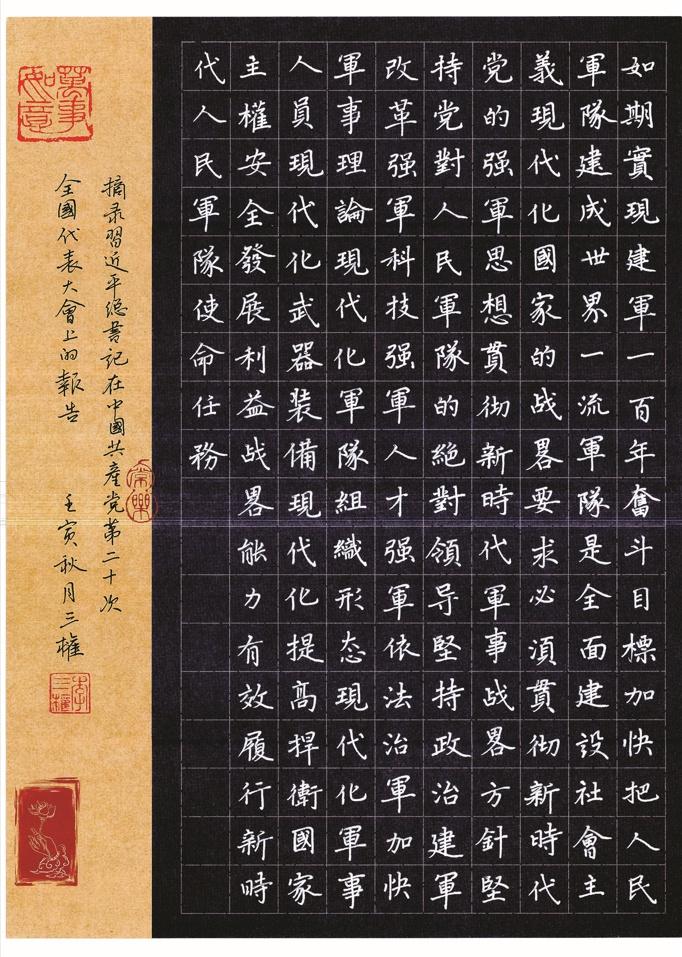 如期實現建軍一百年奮斗目標加快把人民
軍隊建成世界一流軍隊是全面建設社會主
義現代化國家的战畧要求必湏貫彻新時代
党的强軍思想貫彻新時代軍事战畧方針堅
持党對人民軍隊的絕對領导堅持政治建軍
改革强軍科技强軍人才强軍依法治軍加快
軍事理論現代化軍隊組織形态現代化軍事
人員現代化武器装備現代化提高捍衛國家
主權安全發展利益战畧能力有效履行新時
代人民軍隊使命任務
摘录習近平總書記在中國共產党第二十次
全國代表大會上的報告 壬寅秋月三權
萬事如意
常樂
李三權